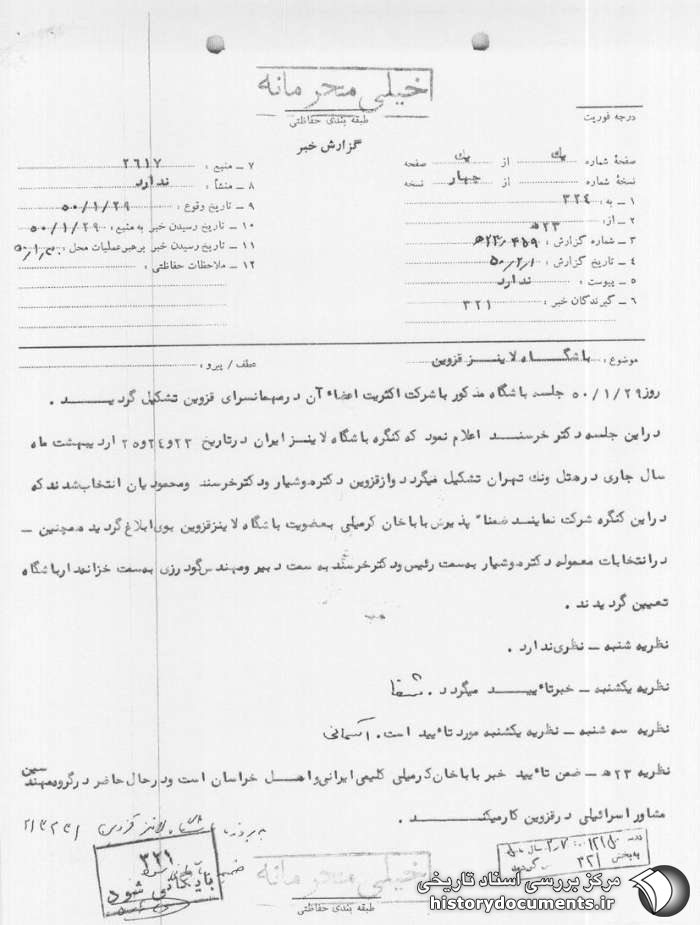 خیلی محرمانه
طبقه بندی حفاظتی
گزارش خبر
درجه فوریت
صفحهٔ شماره یک از یک صفحه
نسخهٔ شماره از چهار نسخه
۱ ـ به : ۳۲۴
۲ ـ از: ۲۳ﻫ
۳ ـ شماره گزارش : ۲۳۰۴۵۹ﻫ
۴ ـ تاریخ گزارش : ۵۰/۲/۱
۵ ـ پیوست : ندارد
۶ ـ گیرندگان خبر : ۳۲۱
۷ ـ منبع : ۲۶۱۷
۸ ـ منشأ : ندارد
۹ ـ تاریخ وقوع : ۵۰/۱/۲۹
۱۰ ـ تاریخ رسیدن خبر به منبع : ۵۰/۱/۲۹
۱۱ ـ تاریخ رسیدن خبر برهبرعملیات محل : ۵۰/۱/۳۰
۱۲ ـ ملاحظات حفاظتی :
موضوع : باشگاه لاینز قزوین
عطف / پیرو :
روز ۵۰/۱/۲۹ جلسه باشگاه مذکور با شرکت اکثریت اعضاء آن در مهمانسرای قزوین تشکیل گردید .
در این جلسه دکتر خرسند اعلام نمود که کنگره باشگاه لاینز ایران در تاریخ ۲۳ و ۲۴ و ۲۵ اردیبهشت ماه
سال جاری در هتل ونک تهران تشکیل میگردد و از قزوین دکتر هوشیار و دکتر خرسند و محمودیان انتخاب شدند که
در این کنگره شرکت نمایند ضمناً پذیرش باباخان کرمیلی بعضویت باشگاه لاینز قزوین بوی ابلاغ گردید همچنین ـ
در انتخابات معموله دکتر هوشیار به سمت رئیس و دکتر خرسند به سمت دبیر و مهندس گودرزی به سمت خزانه‌دار باشگاه
تعیین گردیدند .
نظریه شنبه ـ نظری ندارد .
نظریه یکشنبه ـ خبر تائید میگردد . شفا
نظریه سه شنبه ـ نظریه یکشنبه مورد تائید است . آسمانی
نظریه ۲۳ﻫ ـ ضمن تائید خبر باباخان کرمیلی کلیمی ایرانی و اهل خراسان است و در حال حاضر در گروه مهندسین
مشاور اسرائیلی در قزوین کار میکند .
باشگاه لاینز قزوین
۳۲۱
بایگانی شود
خیلی محرمانه
طبقه بندی حفاظتی
مرکز بررسی اسناد تاریخی
historydocuments.ir